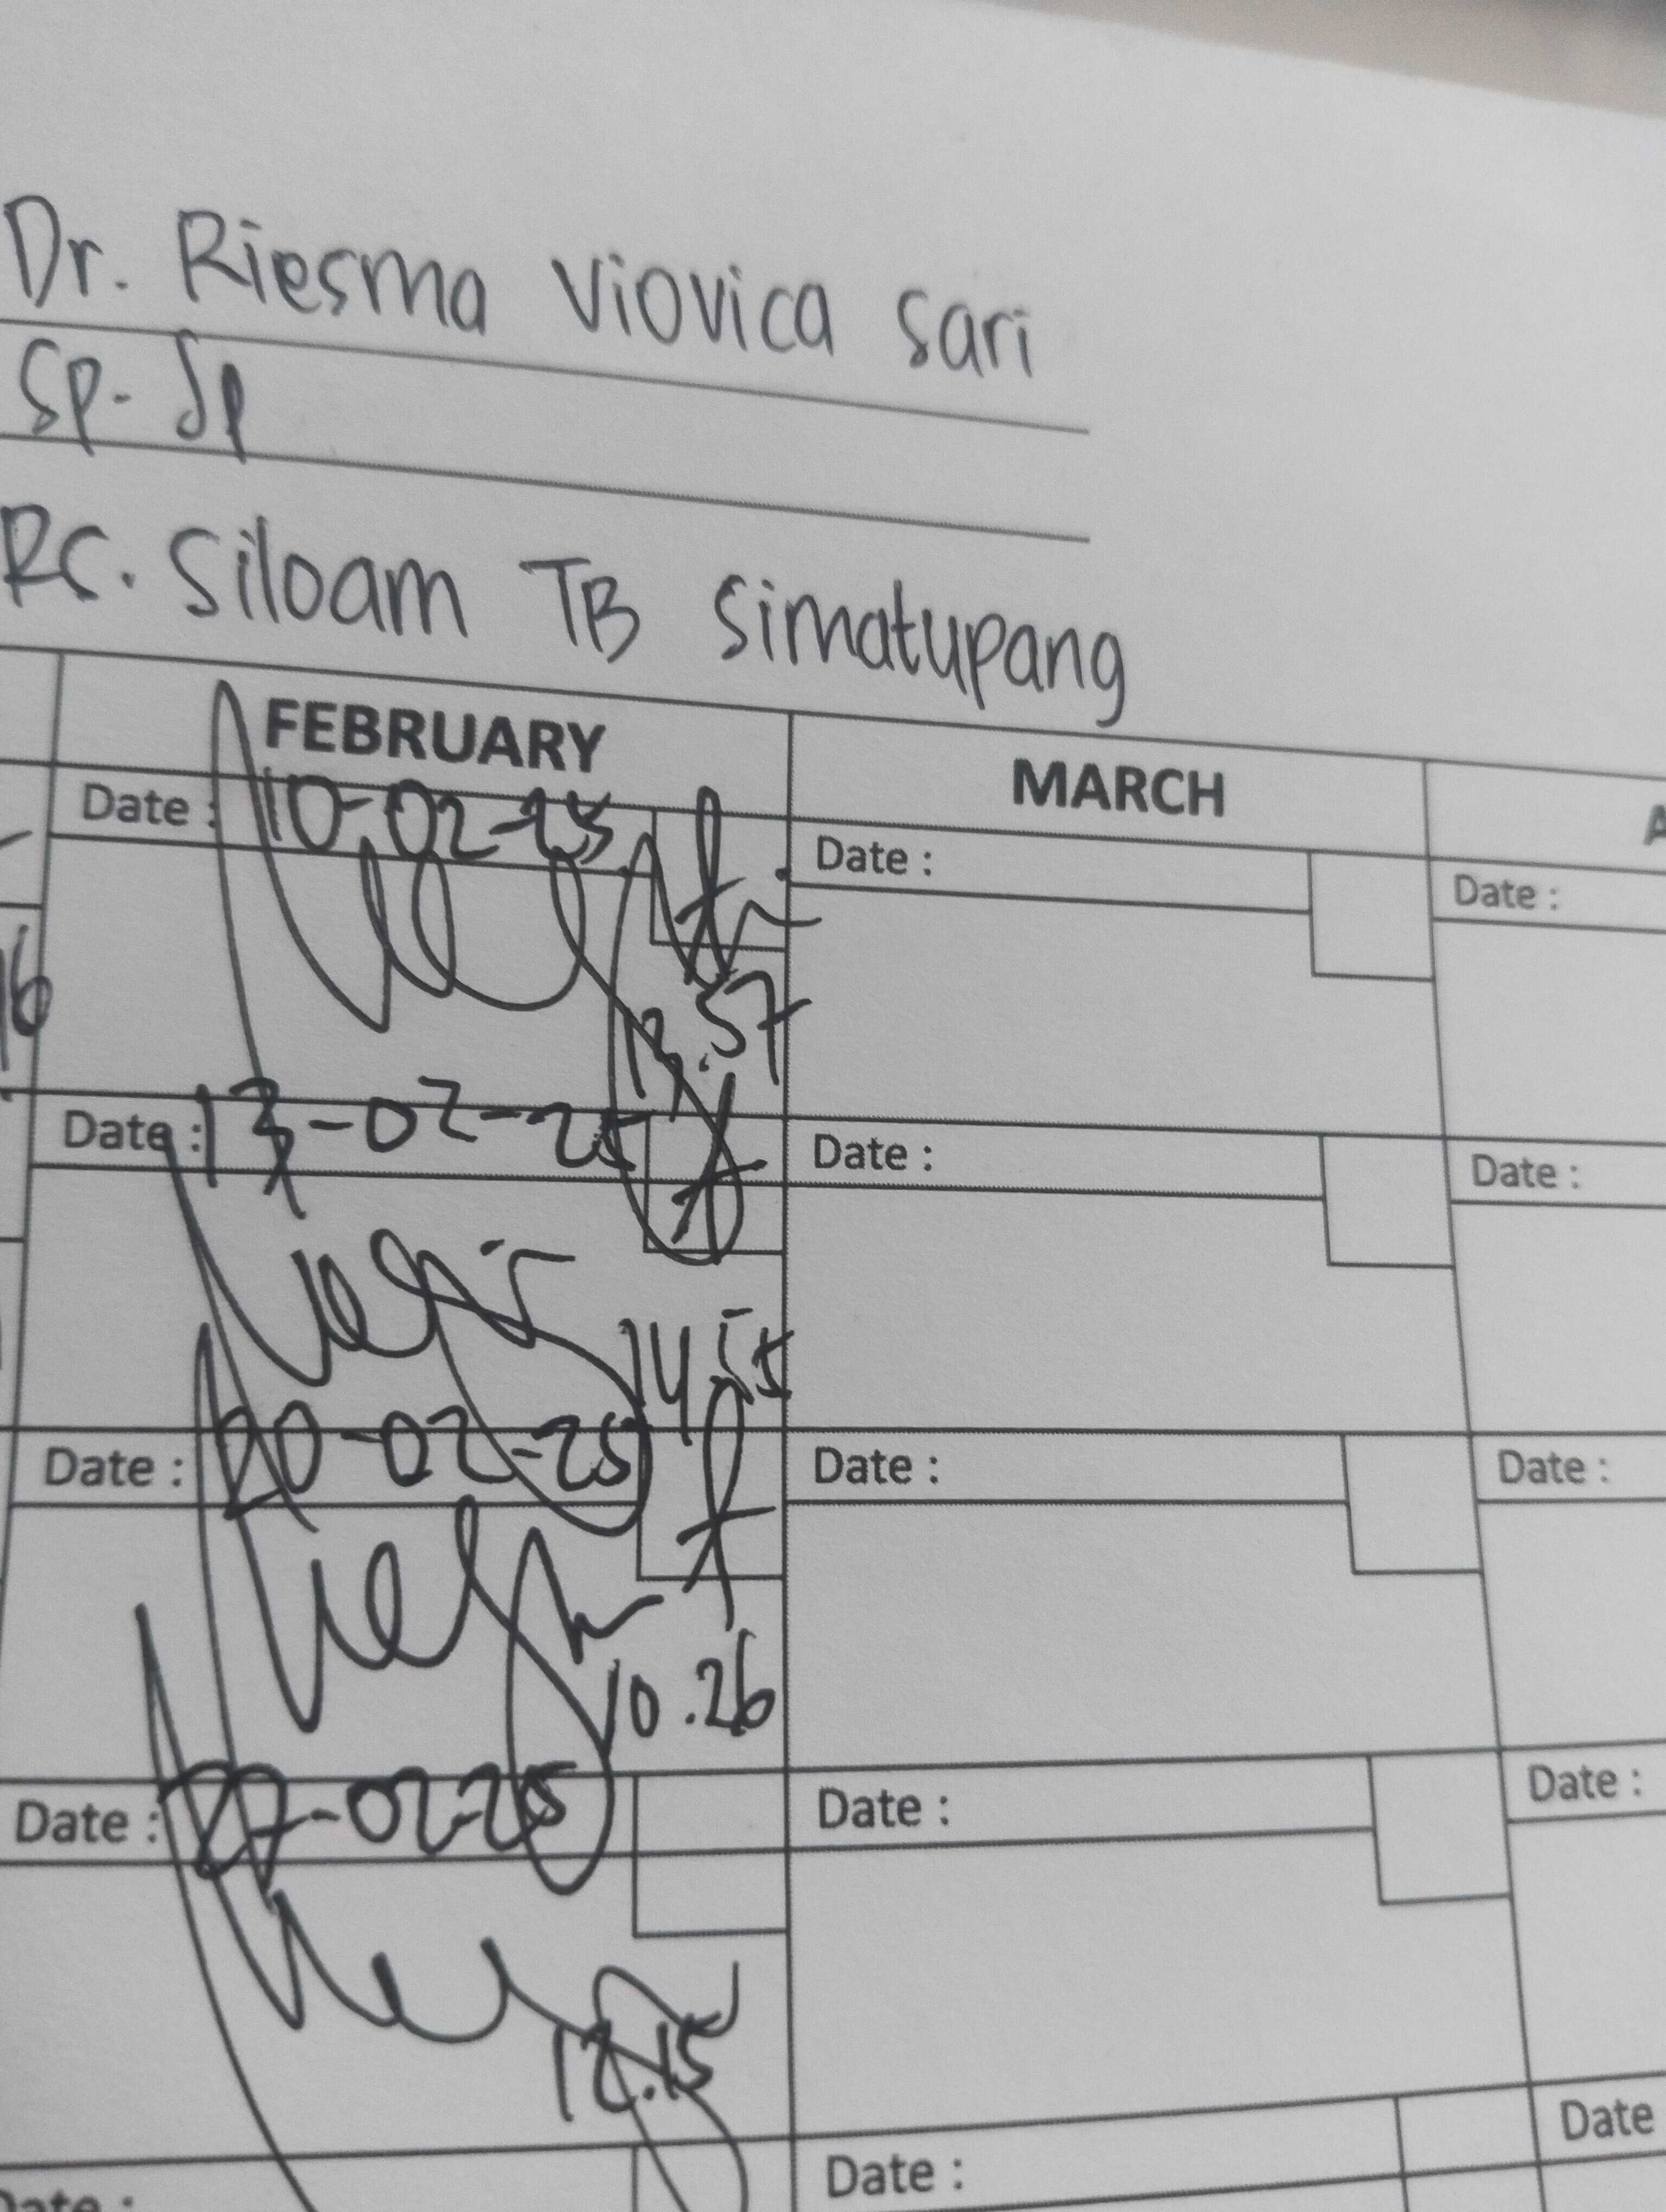 Dr. Riesma Viovica Sari
Sp. Jp
RS. Siloam TB Simatupang
FEBRUARY MARCH
Date : 10-02-25 Date : Date :
16
13.57
Date : 13-02-25 Date : Date :
14.55
Date : 20-02-25 Date : Date :
10.26
Date : 27-02-25 Date : Date :
12.15
Date : Date : Date